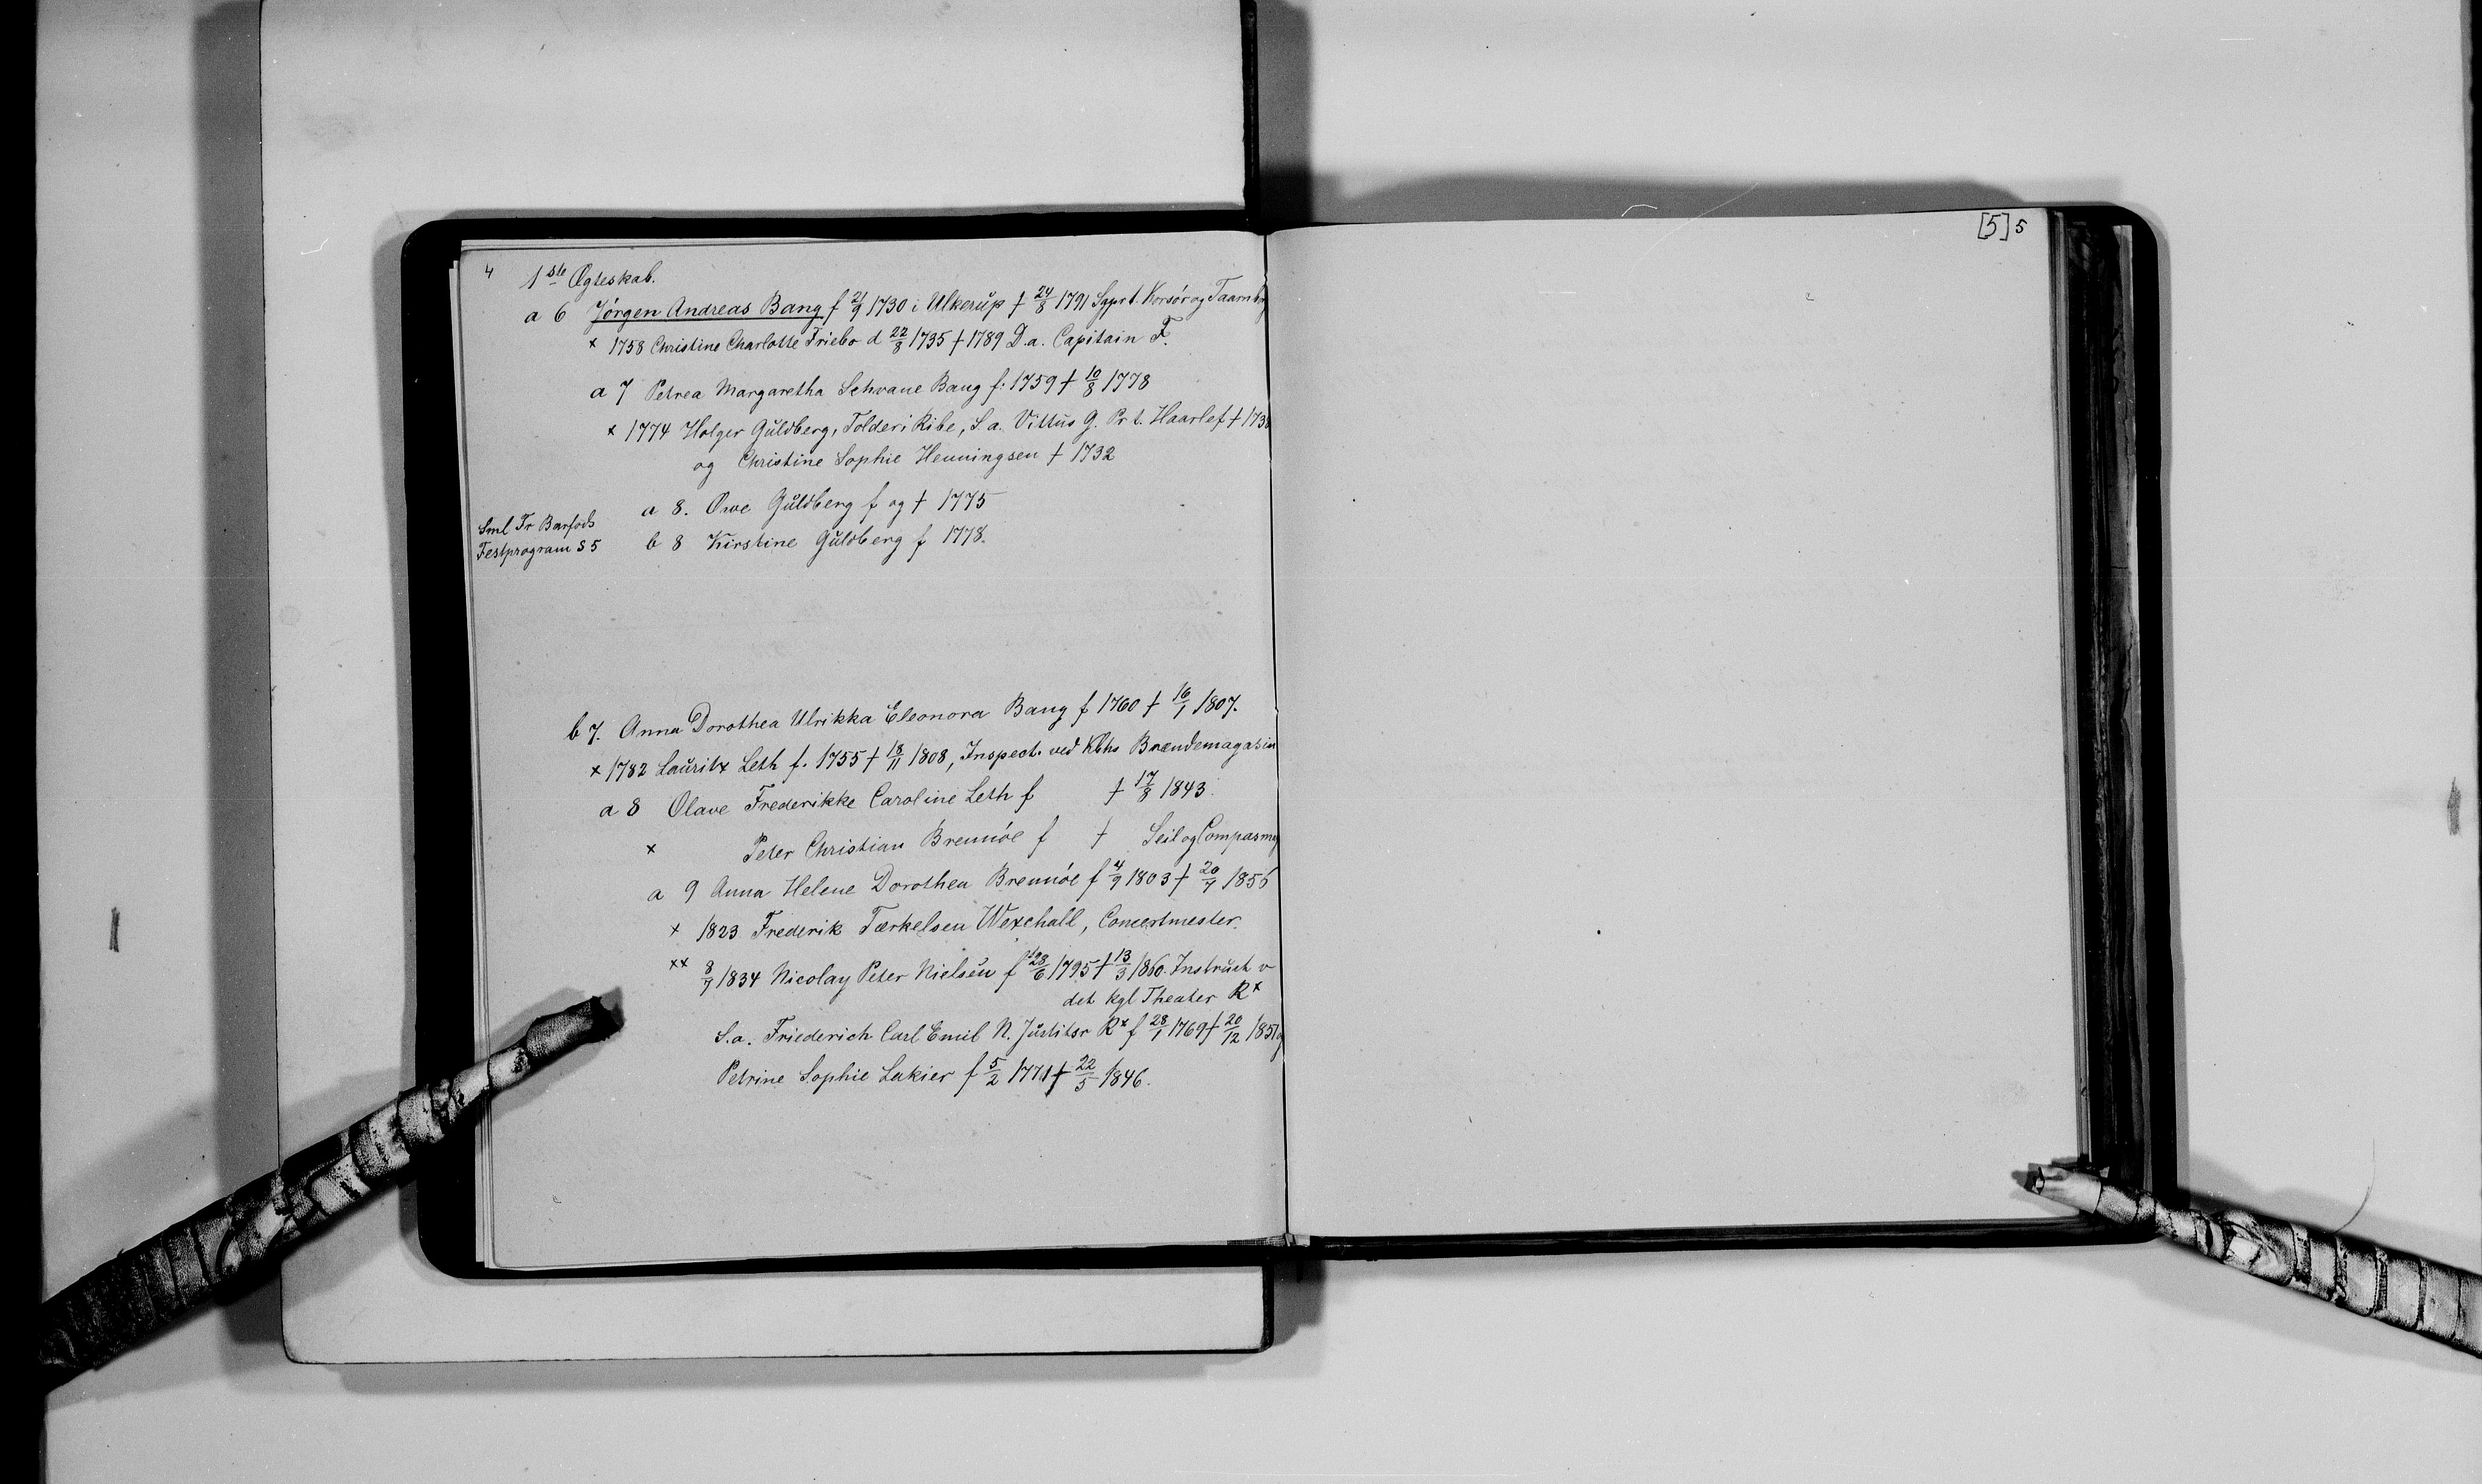 4
1ste Ægteskab.
a 6 Jørgen Andreas Bang f 21/9 1730 i Ulkerup † 24/8 1791 Sgpr t. Korsør og Taarnbg
× 1758 Christine Charlotte Friebo d 22/8 1735 † 1789 D.a. Capitain F.
a 7 Petrea Margaretha Schvane Bang f: 1759 † 10/8 1778
× 1774 Holger Guldberg, Tolder i Ribe, S.a. Vittus G. Pr t. Haarlef † 173
og Christine Sophie Henningsen † 1732
a 8. Owe Guldberg f og † 1775
Sml Fr Barfods
Festprogram S 5
b 8 Kirstine Guldberg f 1778.
b 7. Anna Dorothea Ulrikka Eleonora Bang f 1760 † 16/1 1807.
× 1782 Lauritz Leth f. 1755 † 18/11 1808, Inspect. ved Kbhs Brændemagasin
a 8 Olave Frederikke Caroline Leth f † 17/8 1843.
× Peter Christian Brennöe f † Seil og Compasmg
a 9 Anna Helene Dorothea Brennöe f 4/9 1803 † 20/7 1856
× 1823 Frederik Tærkelsen Wexchall, Concertmester.
×× 8/7 1834 Nicolay Peter Nielsen f 28/6 1795 † 13/3 1860. Instruct v
det kgl Theater R×
S.a. Friederich Carl Emil N. Justitsr R× f 28/1 1769 † 20/12 1851 og
Petrine Sophie Lakier f 5/2 1771 † 22/5 1846.
[5] 5